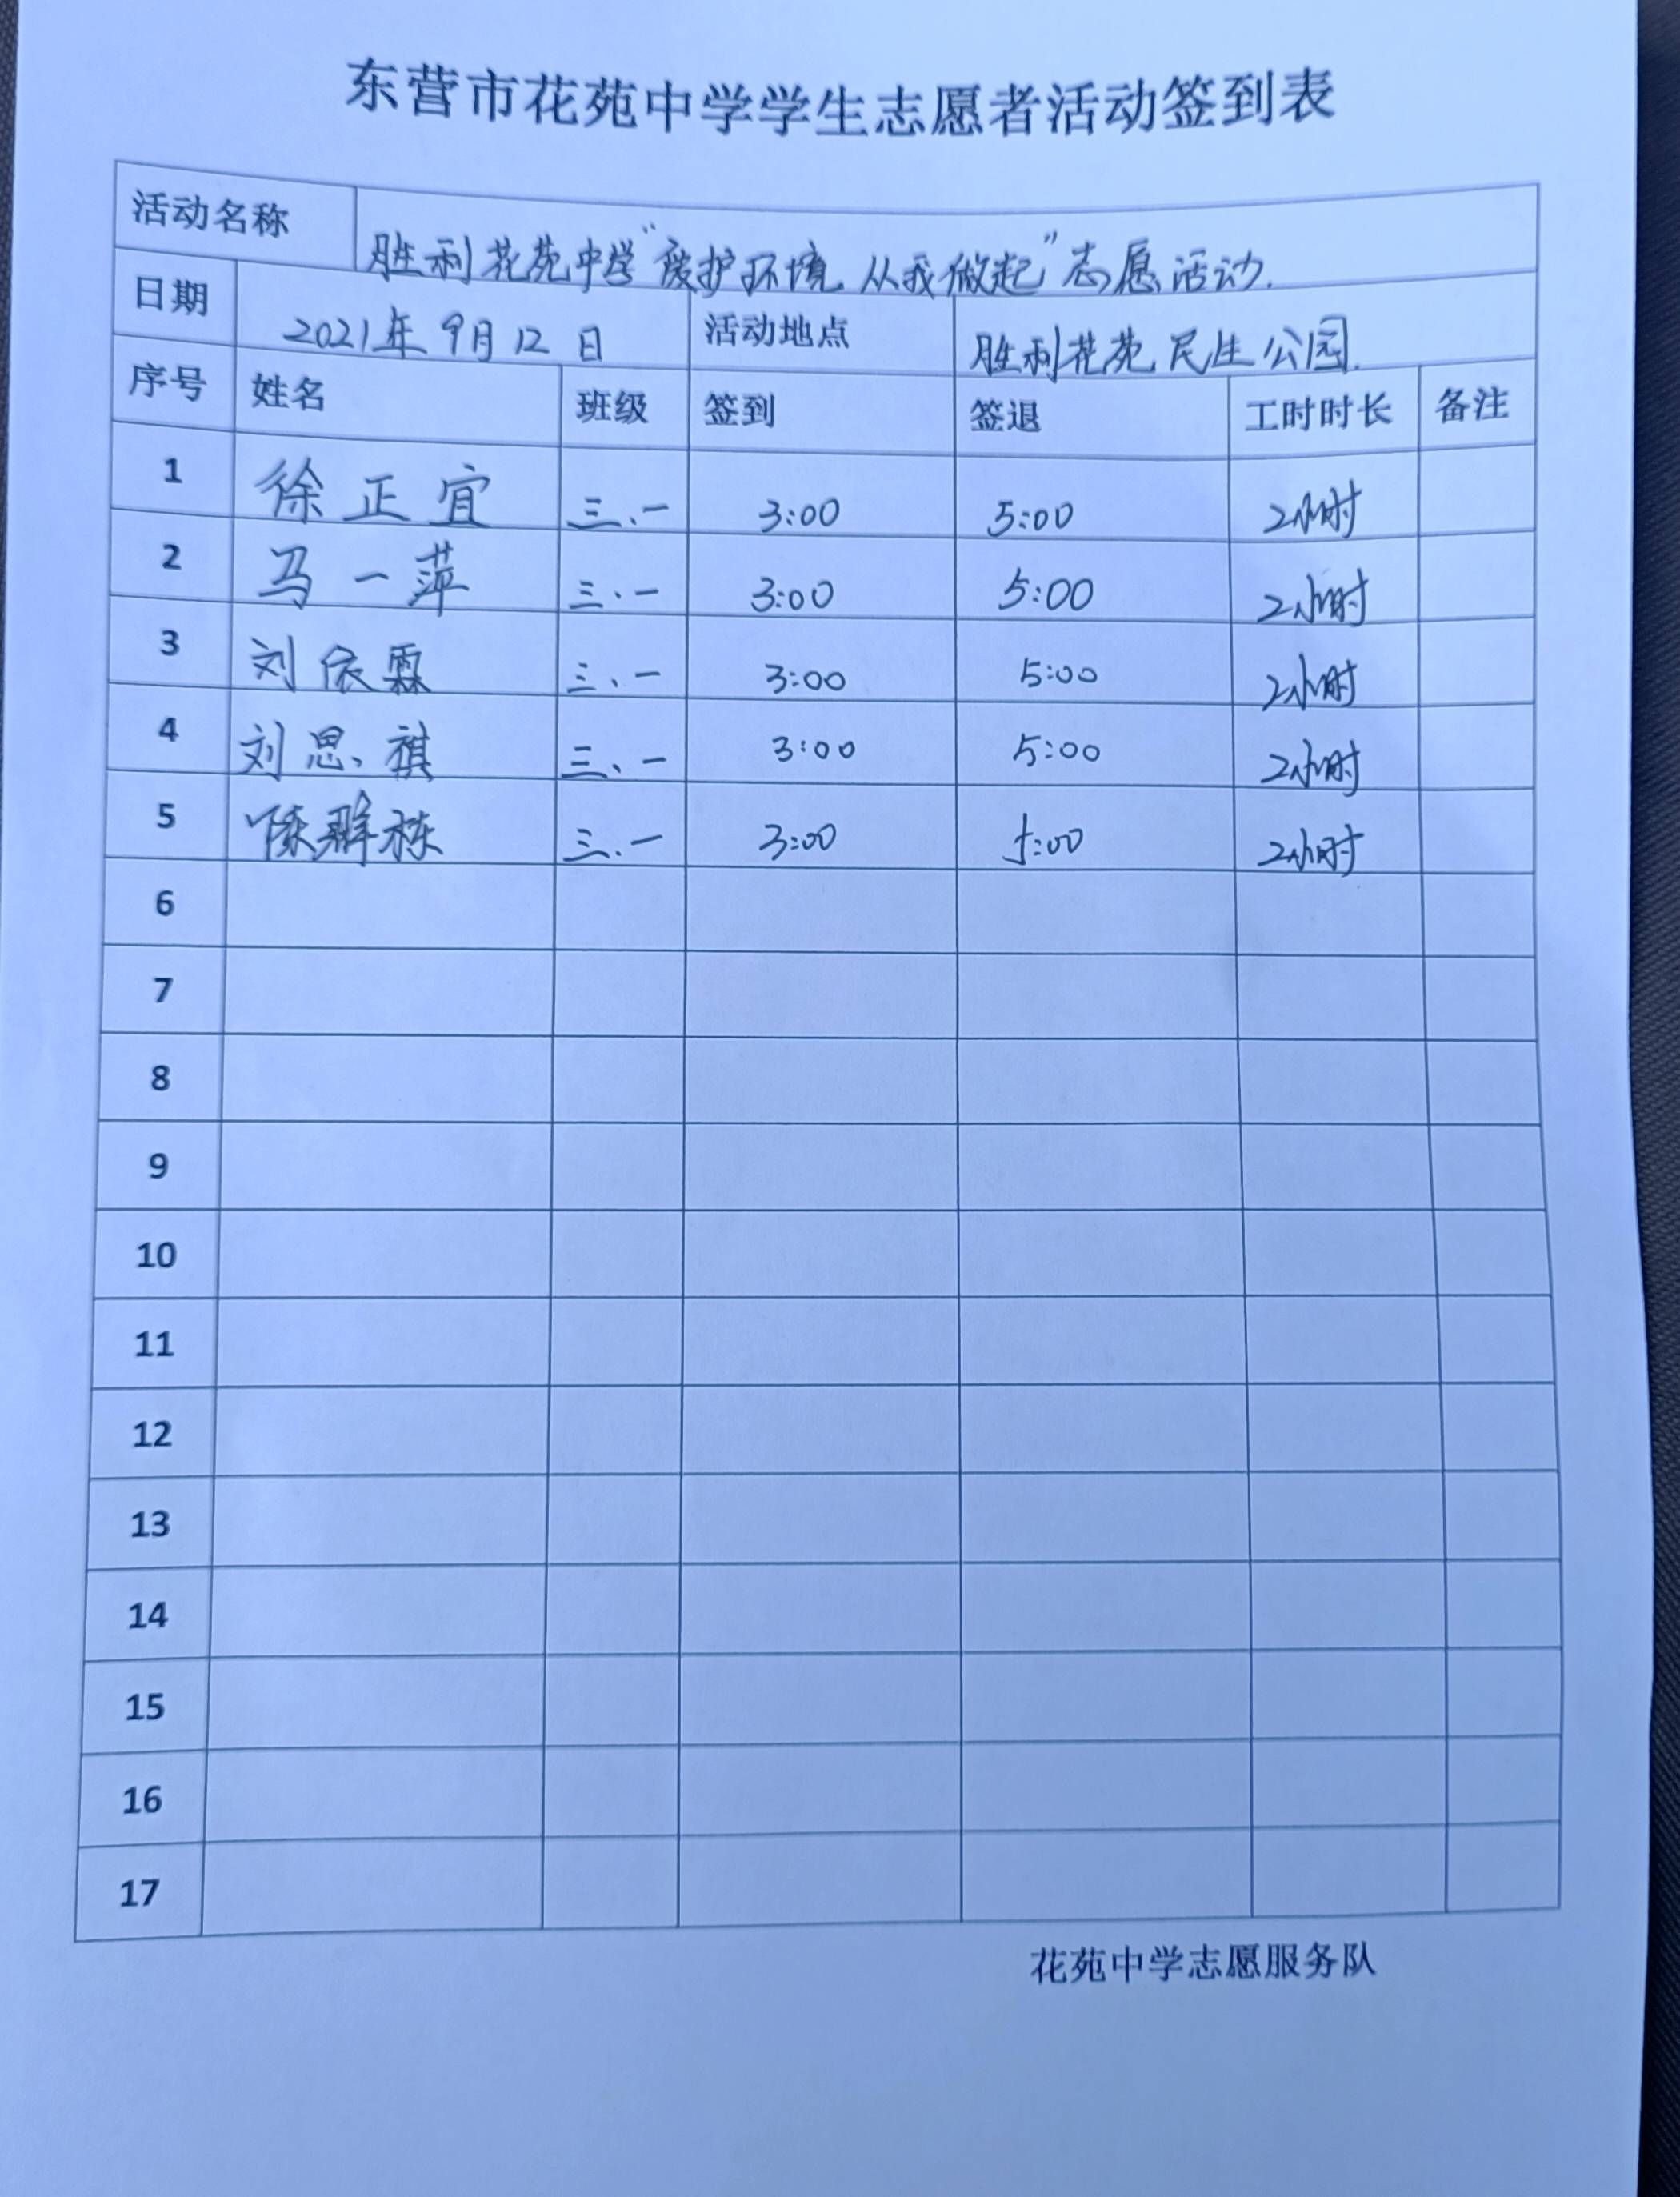 东营市花苑中学学生志愿者活动签到表
活动名称 胜利花苑中学“爱护环境 从我做起”志愿活动.
日期 2021年9月12日 活动地点 胜利花苑民生公园.
序号 姓名 班级 签到 签退 工时时长 备注
1 徐正宜 三、一 3:00 5:00 2小时
2 马一萍 三、一 3:00 5:00 2小时
3 刘依霖 三、一 3:00 5:00 2小时
4 刘思祺 三、一 3:00 5:00 2小时
5 陈群栋 三、一 3:00 5:00 2小时
6
7
8
9
10
11
12
13
14
15
16
17
花苑中学志愿服务队